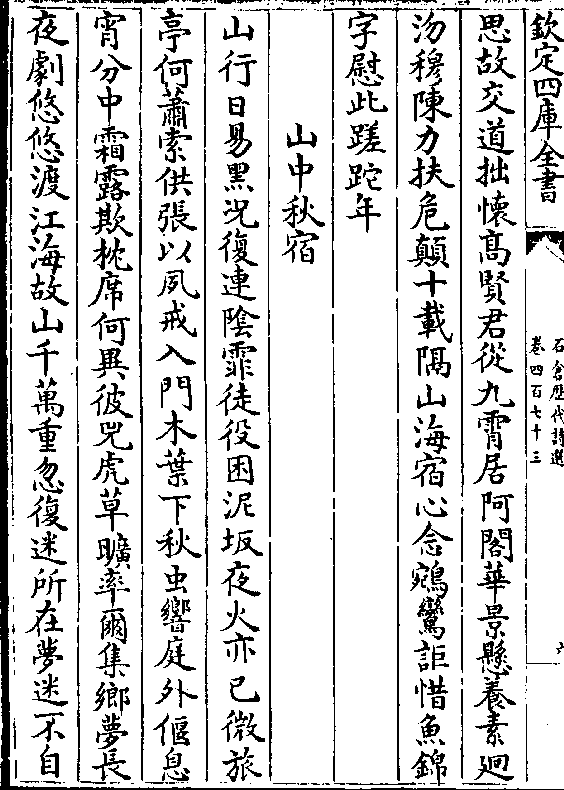 欽定四庫全書
石倉歴代詩選
卷四百七十三
六
思故交道拙懷高賢君從九霄居阿閣華景懸養素迴
沕穆陳力扶危顛十載隔山海宿心念鵷鸞詎惜魚錦
字慰此蹉跎年
山中秋宿
山行日易黑况復連陰霏徒役困泥坂夜火亦已微旅
亭何蕭索供張以夙戒入門木葉下秋虫響庭外偃息
宵分中霜露欺枕席何異彼兕虎草曠率爾集鄉夢長
夜劇悠悠渡江海故山千萬重忽復迷所在夢迷不自